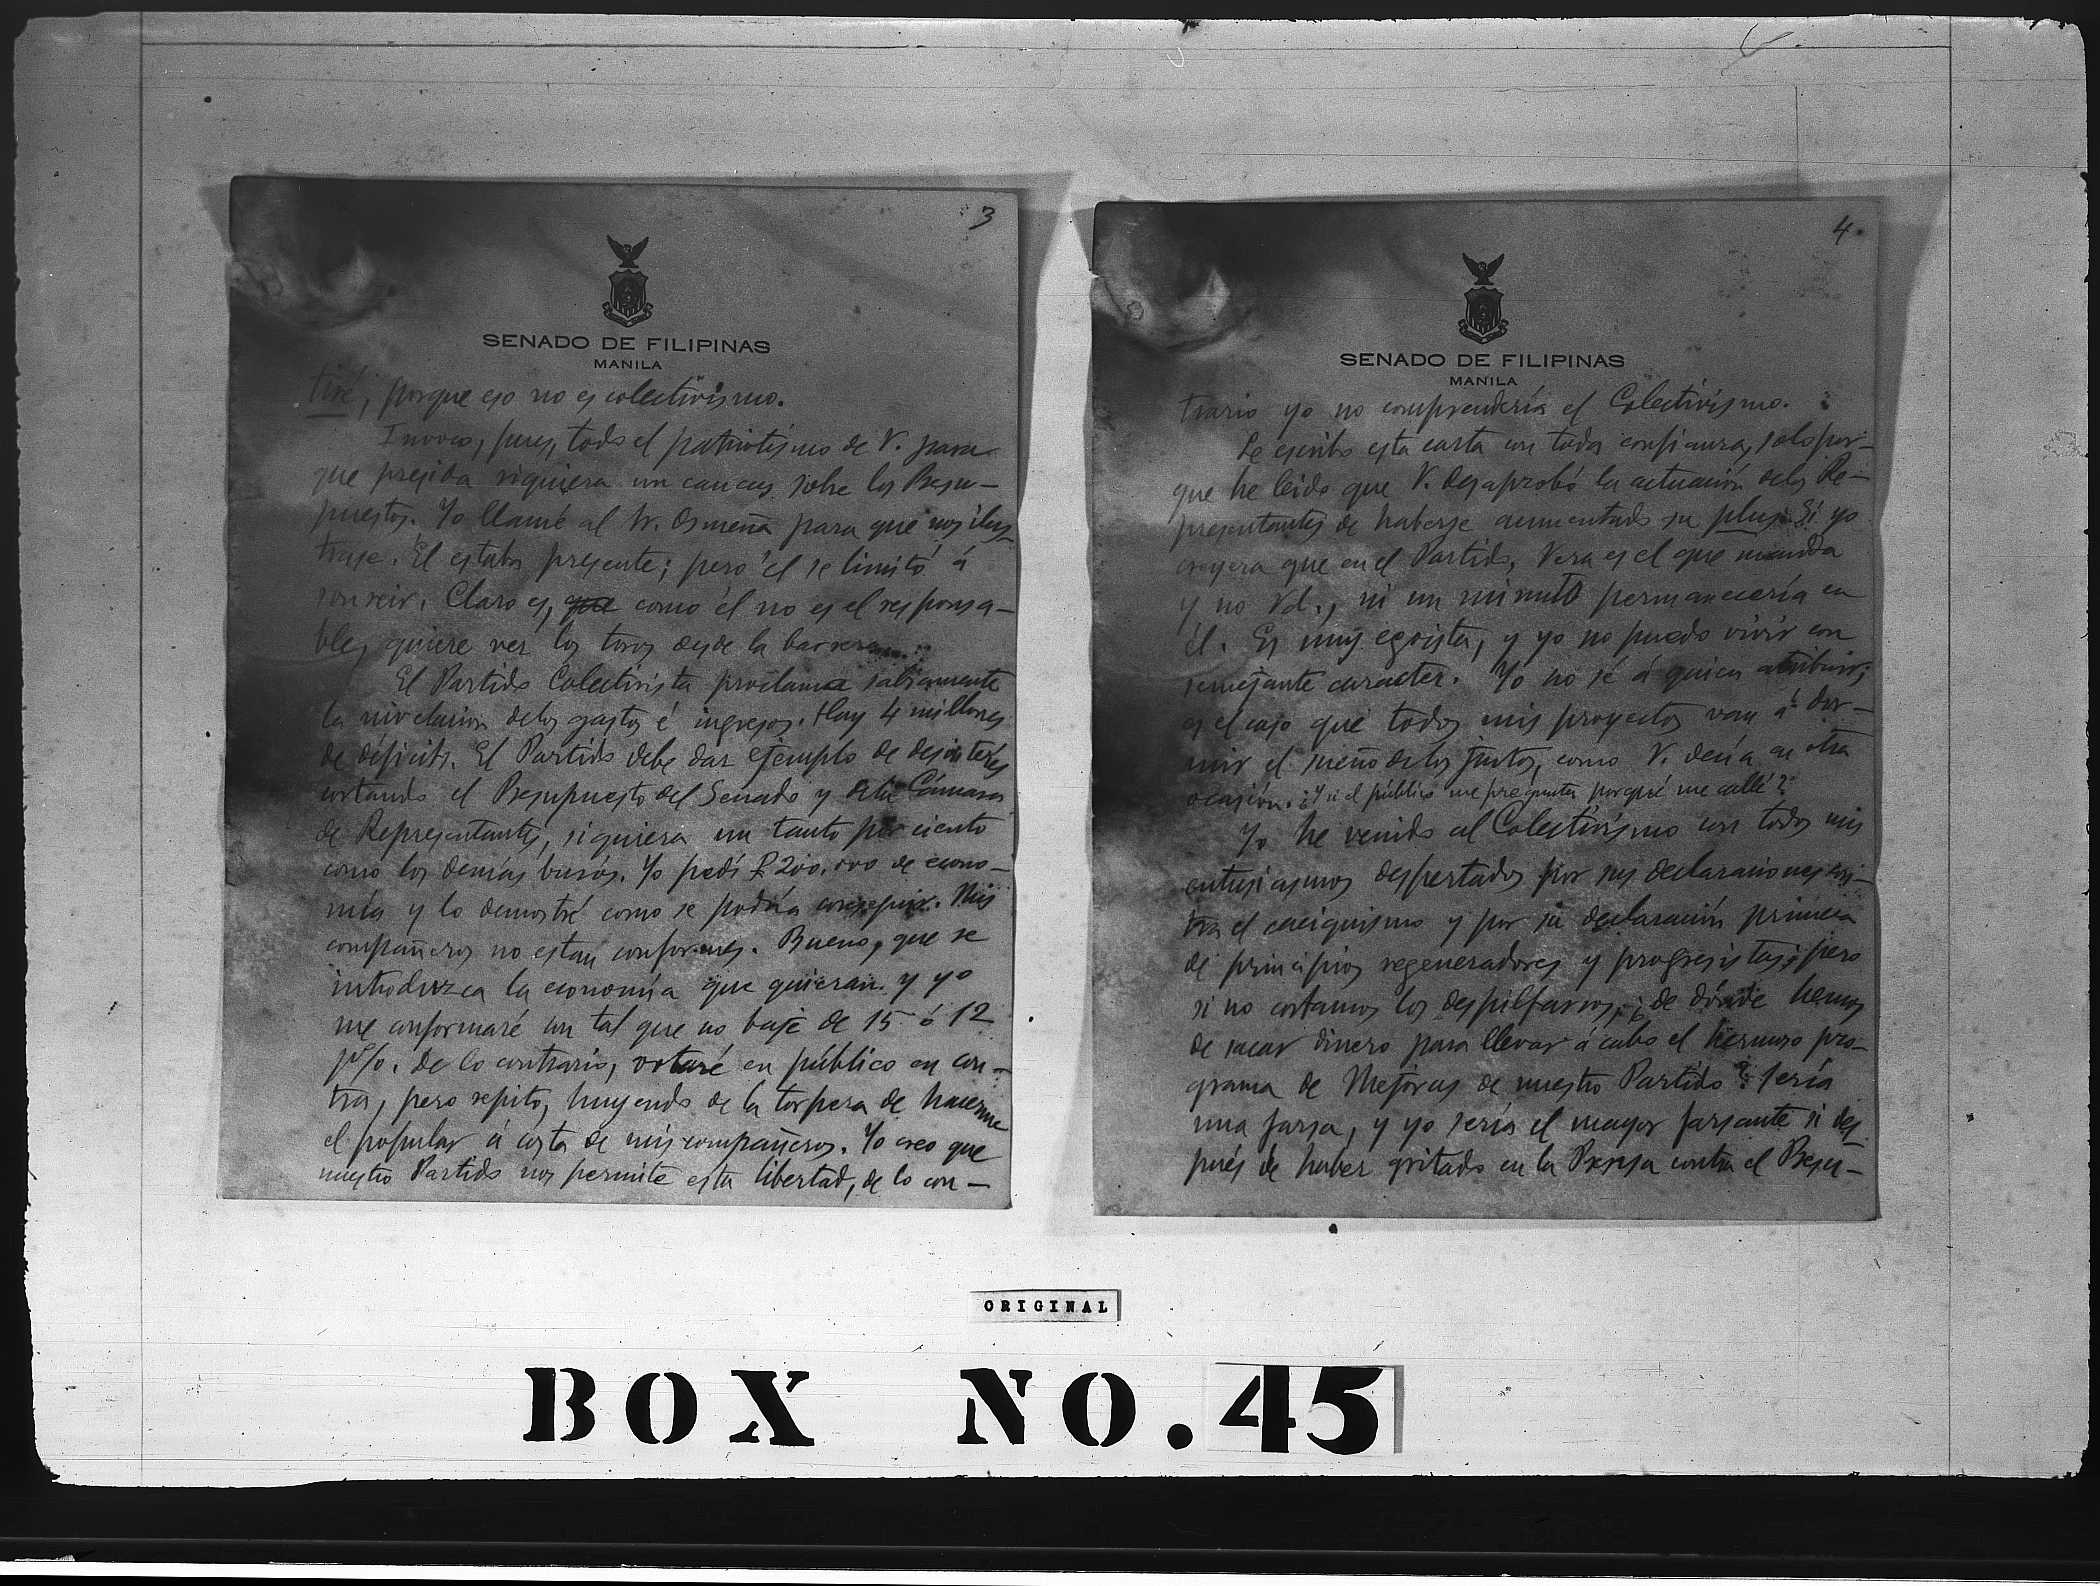 3
SENADO DE FILIPINAS
MANILA
tiré, porque eso no es colectivismo.
Invoco, pues, todo el patriotismo de V. para
que presida siquiera un caucus sobre los Presu-
puestos. Yo llamé al Sr. Osmeña para que nos ilus-
trase. El estaba presente; pero él se limitó á
sonreir. Claro es, que como él no es el responsa-
ble, quiere ver los toros desde la barrera...
El Partido Colectivista proclama sabiamente
la nivelacion de los gastos é ingresos. Hay 4 millones
de déficit. El Partido debe dar ejemplo de desinterés
cortando el Presupuesto del Senado y de la Cámara
de Representantes, siquiera un tanto por ciento
como los demás burós. Yo pedí ₱200.000 de econo-
mía y lo demostré como se podría conseguir. Mis
compañeros no estan conformes. Bueno, que se
introduzca la economía que quieran y yo
me conformaré con tal que no baje de 15 ó 12
p%. De lo contrario, votaré en público en con-
tra, pero repito, huyendo de la torpeza de hacerme
el popular á costa de mis compañeros. Yo creo que
nuestro Partido nos permite esta libertad, de lo con-
4.
SENADO DE FILIPINAS
MANILA
trario yo no comprendería el Colectivismo.
Le escribo esta carta con toda confianza, solo por-
que he leido que V. desaprobó la actuación de los Re-
presentantes de haberse aumentado su plus. Si yo
creyera que en el Partido, Vera es el que manda
y no Vd., ni un minuto permanecería en
él. Es muy egoista, y yo no puedo vivir con
semejante caracter. Yo no sé á quien atribuir;
es el caso que todos mis proyectos van á dor-
mir el sueño de los justos, como V. decía en otra
ocasión. ¿Y si el público me pregunta porqué me callé?
Yo he venido al Colectivismo con todos mis
entusiasmos despertados por sus declaraciones con-
tra el caciquismo y por su declaración primera
de principios regeneradores y progresistas; pero
si no cortamos los despilfarros, ¿de dónde hemos
de sacar dinero para llevar á cabo el hermoso pro-
grama de Mejoras de nuestro Partido? Sería
una farsa, y yo sería el mayor farsante si des-
pués de haber gritado en la Prensa contra el Presu-
ORIGINAL
BOX NO. 45